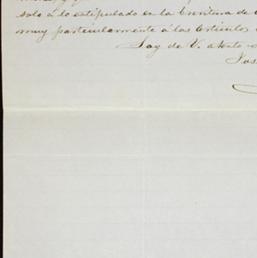 solo á lo estipulado en la Escritura de
muy particularmente á los Articulos
Soy de V. atento